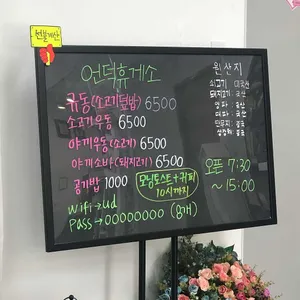 선불계산
언덕휴게소
규동(소고기덮밥) 6500
소고기우동 6500
야끼우동(소고기) 6500
야끼소바(돼지고기) 6500
공기밥 1000
모닝토스트+커피
10시까지
Wifi→ud
Pass→00000000 (8개)
원산지
쇠고기 : 미국산
돼지고기 : 국산
쌀 : 국산
양파 : 국산
대파 : 국산
단무지 : 중국
오픈 7:30
~ 15:00